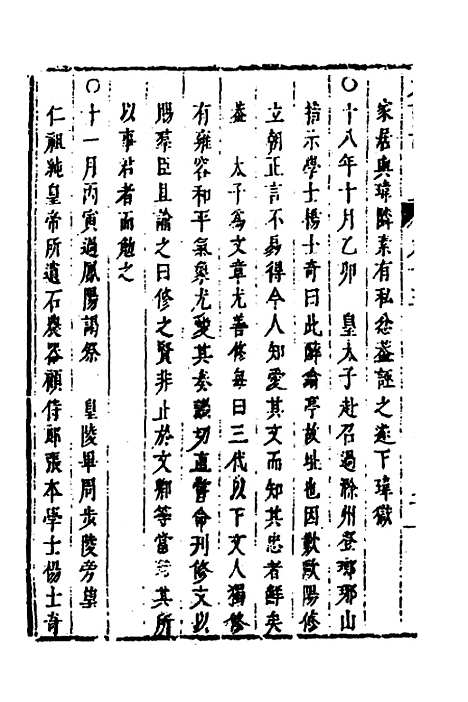 家居與瑋隣素有私忿葢誣之遂下瑋獄
〇十八年十月乙卯 皇太子赴召過滁州登瑯琊山
指示學士楊士奇曰此醉翁亭故址也因歎歐陽修
立朝正言不易得今人知愛其文而知其忠者鮮矣
葢 太子爲文章尤善修每曰三代以下文人獨修
有雍容和平氣象尤愛其奏議切直嘗命刊修文以
賜羣臣且諭之曰修之賢非止於文卿等當 其所
以事君者而勉之
〇十一月丙寅過鳳陽謁祭 皇陵畢周步陵旁望
仁祖純皇帝所遺石農器顧侍郎張本學士楊士奇